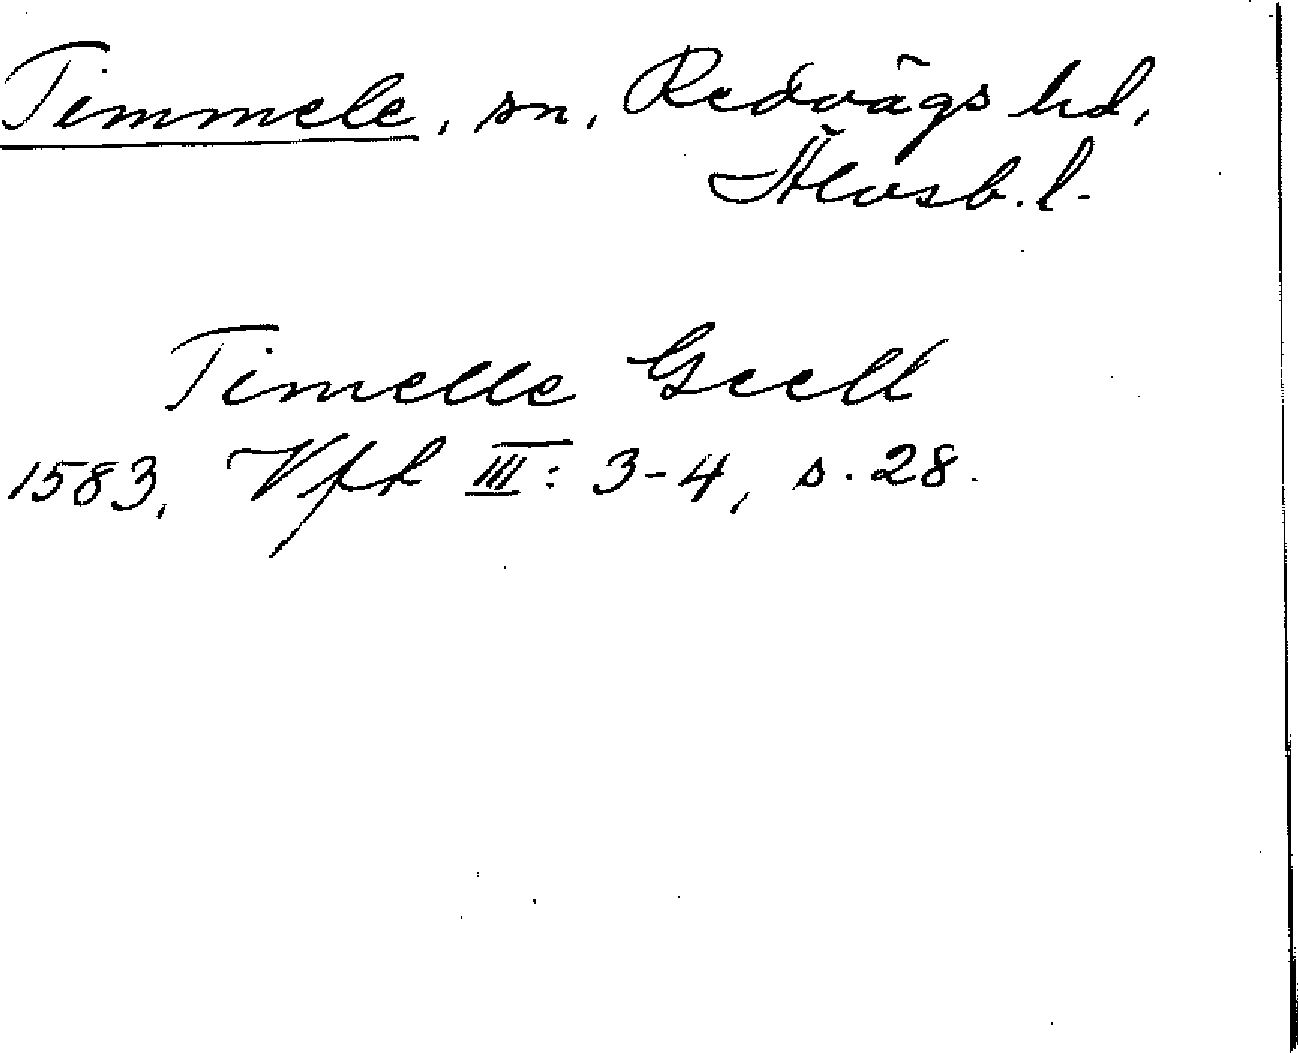 Timmele, sn, Redvägs hd,
Älvsb. l.
Timelle Geell
1583, Vfk III: 3-4, s. 28.